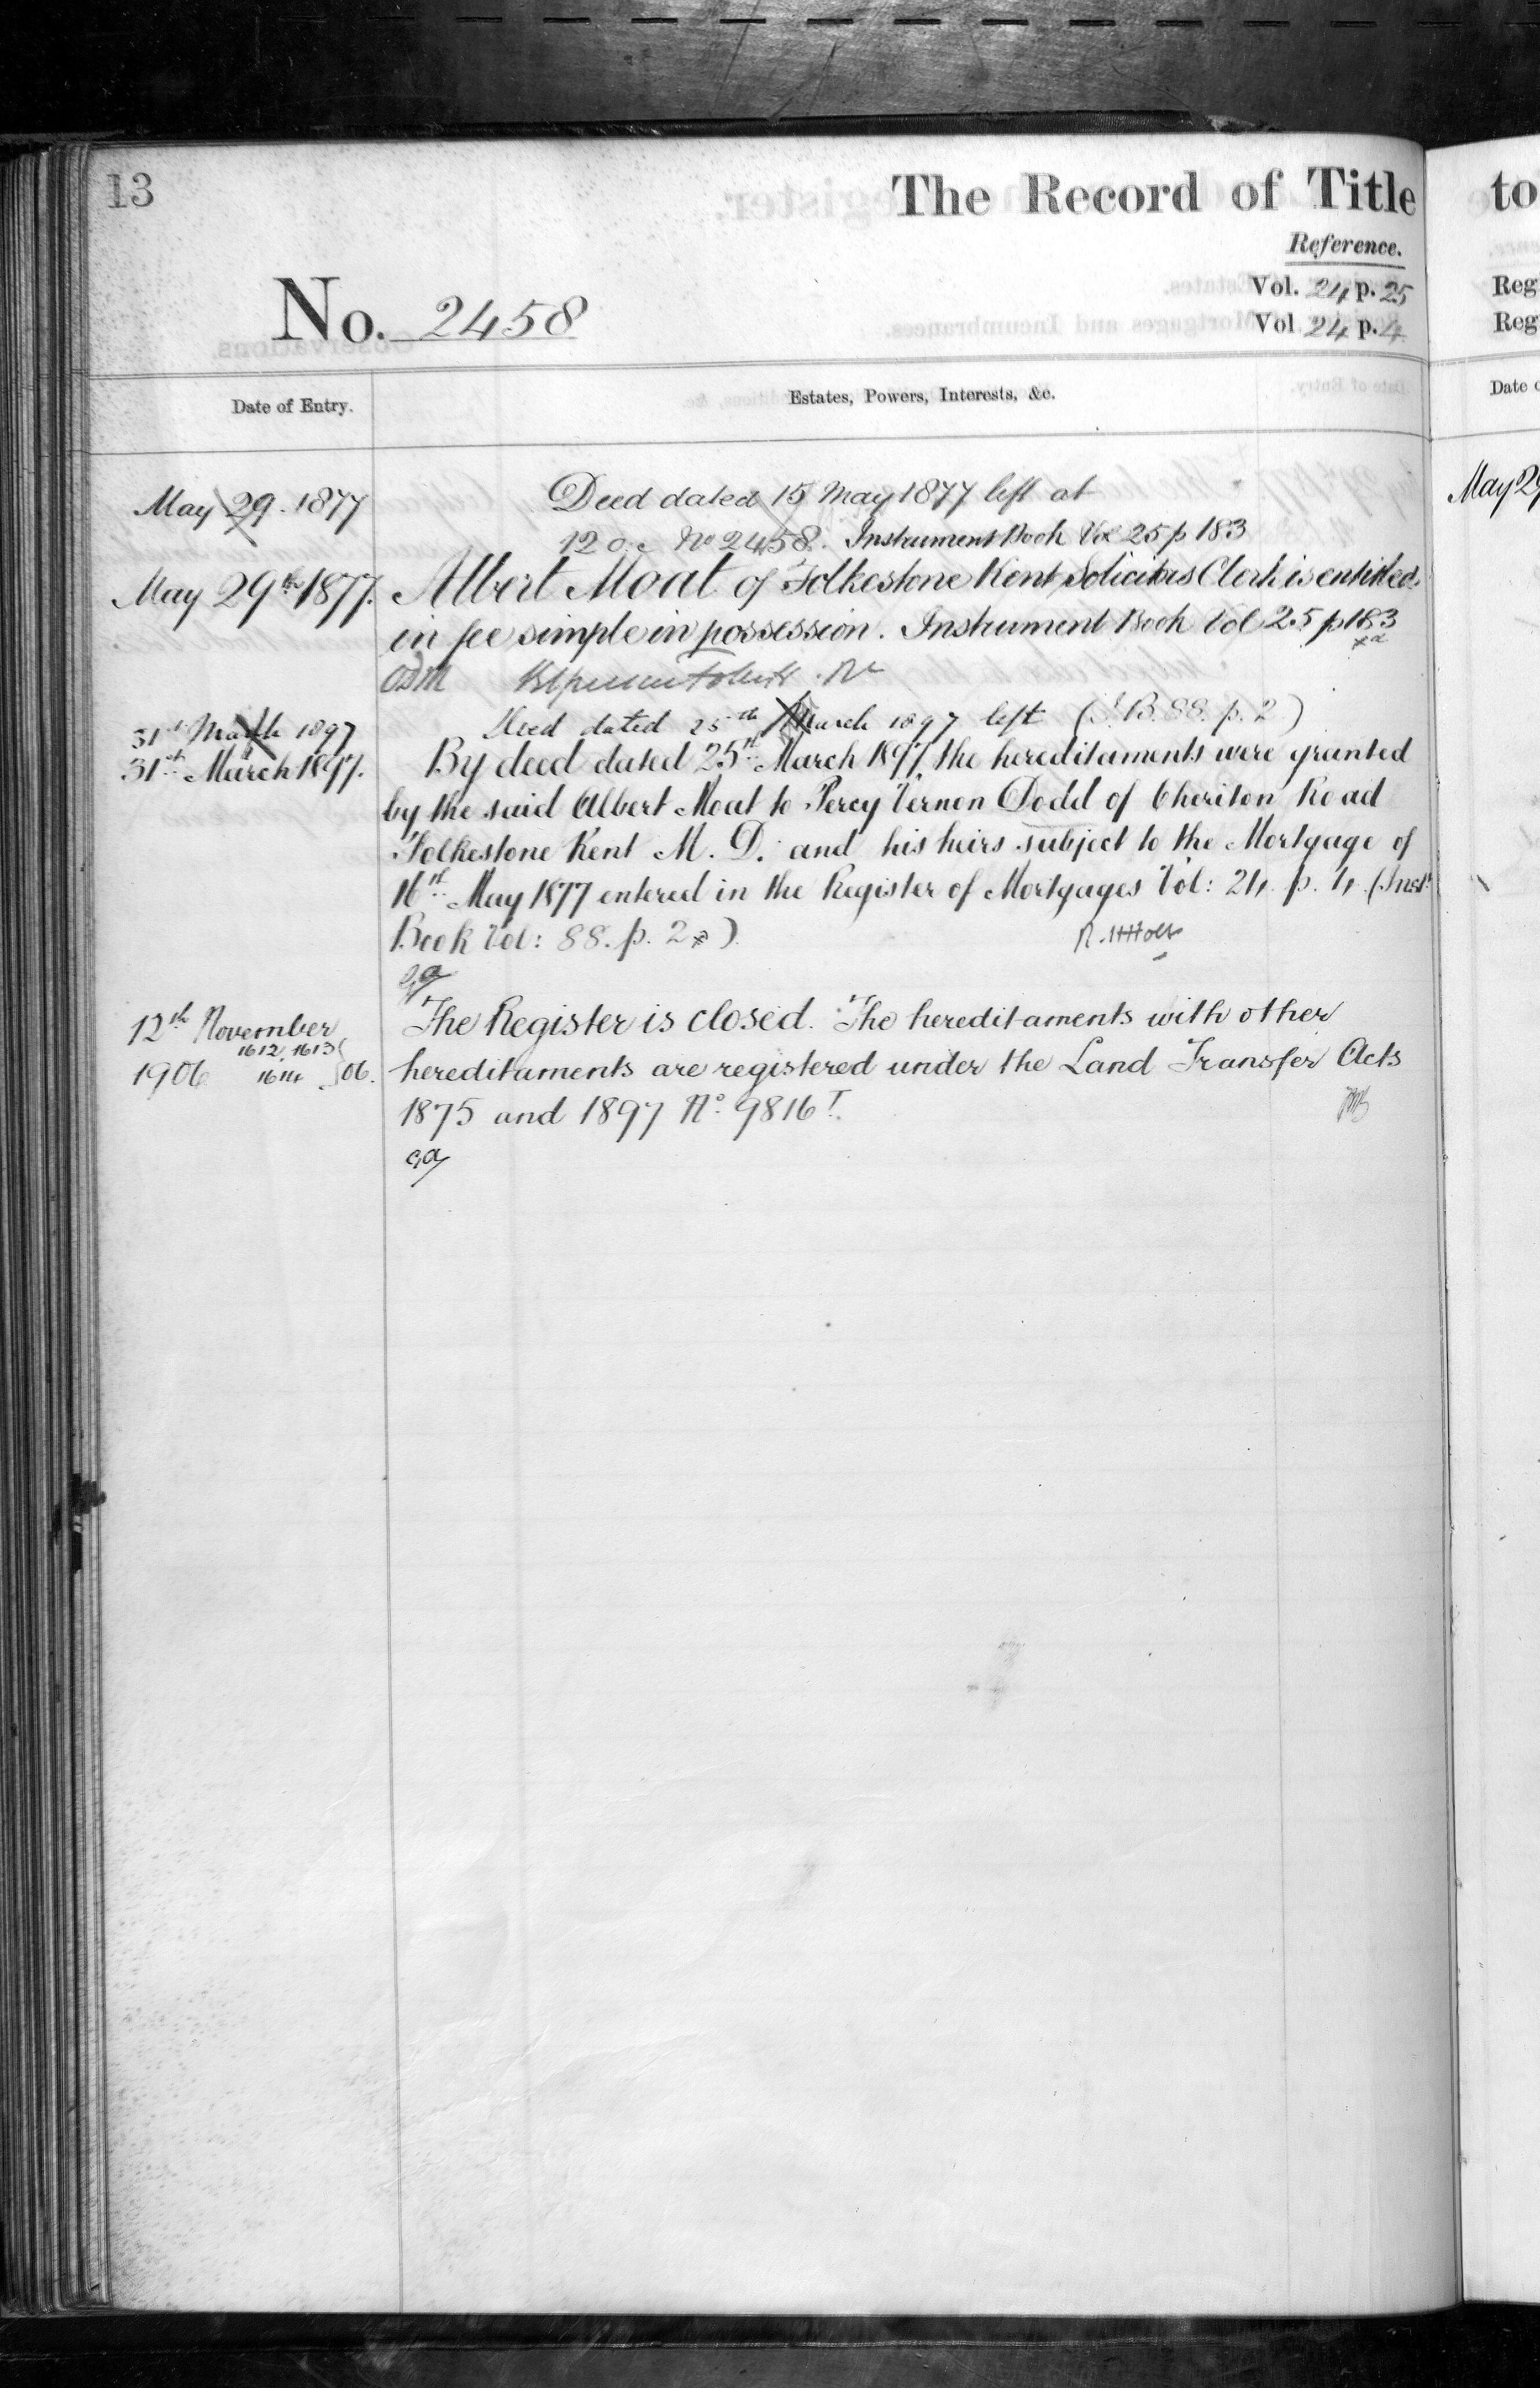 13
The Record of Title
Reference.
No. 2458
Vol. 24 p. 25
Vol 24 p. 4
Date of Entry.
Estates, Powers, Interests, &c.
May 29. 1877
Deed dated 15 May 1877 left at
12 o.c No 2458. Instrument Book Vol 25 p 183
May 29th 1877. Albert Moat of Folkestone Kent Solicitors Clerk is entitled
in fee simple in possession. Instrument Book Vol 25 p 183
31st March 1897
Deed dated 25th March 1897 left (I.B. 88. p. 2)
31st March 1897. By deed dated 25th March 1897 the hereditaments were granted
by the said Albert Moat to Percy Vernon Dodd of Cheriton Road
Folkestone Kent M. D. and his heirs subject to the Mortgage of
16th May 1877 entered in the Register of Mortgages Vol: 24. p. 4 (Inst
Book Vol: 88. p. 2)
R. H Holt
12th November
1906 1612, 1613
1614 06.
The Register is closed. The hereditaments with other
hereditaments are registered under the Land Transfer Acts
1875 and 1897 No. 9816 T.
to
Reg
Reg
Date o
May 29